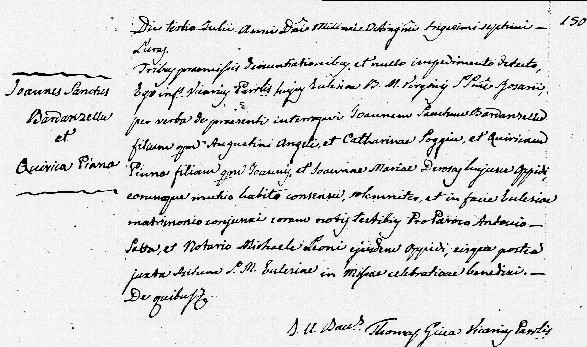 150
Die tertio Julii Anni Dñi Millmi Octingmi trigesimi septimi -
Luras.
Tribus praemissis denuntiationibus, et nullo impedimento detecto,
Ego infus Vicarius Parlis hujus Ecclesiae B. M. Virginis Ssmi Rosarii,
per verba de praesenti interrogavi Joannem Sanches Bardanzellu
filium qm Augustini Angeli, et Catharinae Poggiu, et Quiricam
Piano filiam qm Joannis, et Joanna Mariae Derosas hujusce Oppidi,
eorumque mutuo habito consensu, solemniter, et in facie Ecclesiae
matrimonio conjunxi coram notis testibus Pro Paroco Antonio
et Notario Michaele Leoni ejusdem Oppidi; eisque postea
juxta Ritum S. M. Ecclesiae in Missae celebratione benedixi. -
De quibus
Joannes Sanches
Bardanzellu
et
Quirica Piano
Thomas Vicarius Parlis